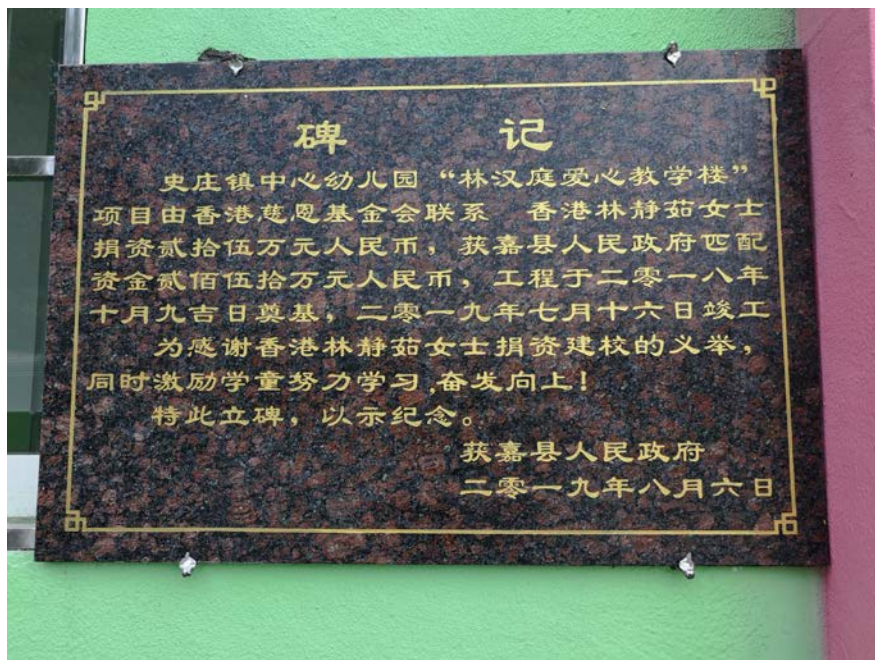 碑 记
史庄镇中心幼儿园“林汉庭爱心教学楼”
项目由香港慈恩基金会联系 香港林静茹女士
捐资贰拾伍万元人民币，获嘉县人民政府匹配
资金贰佰伍拾万元人民币，工程于二零一八年
十月九吉日奠基，二零一九年七月十六日竣工
为感谢香港林静茹女士捐资建校的义举，
同时激励学童努力学习,奋发向上！
特此立碑，以示纪念。
获嘉县人民政府
二零一九年八月六日